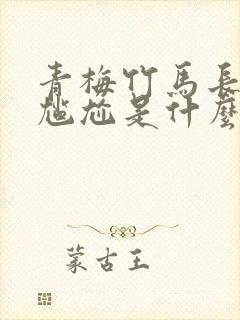 青梅竹馬長
尷尬是什麼
蒙古王